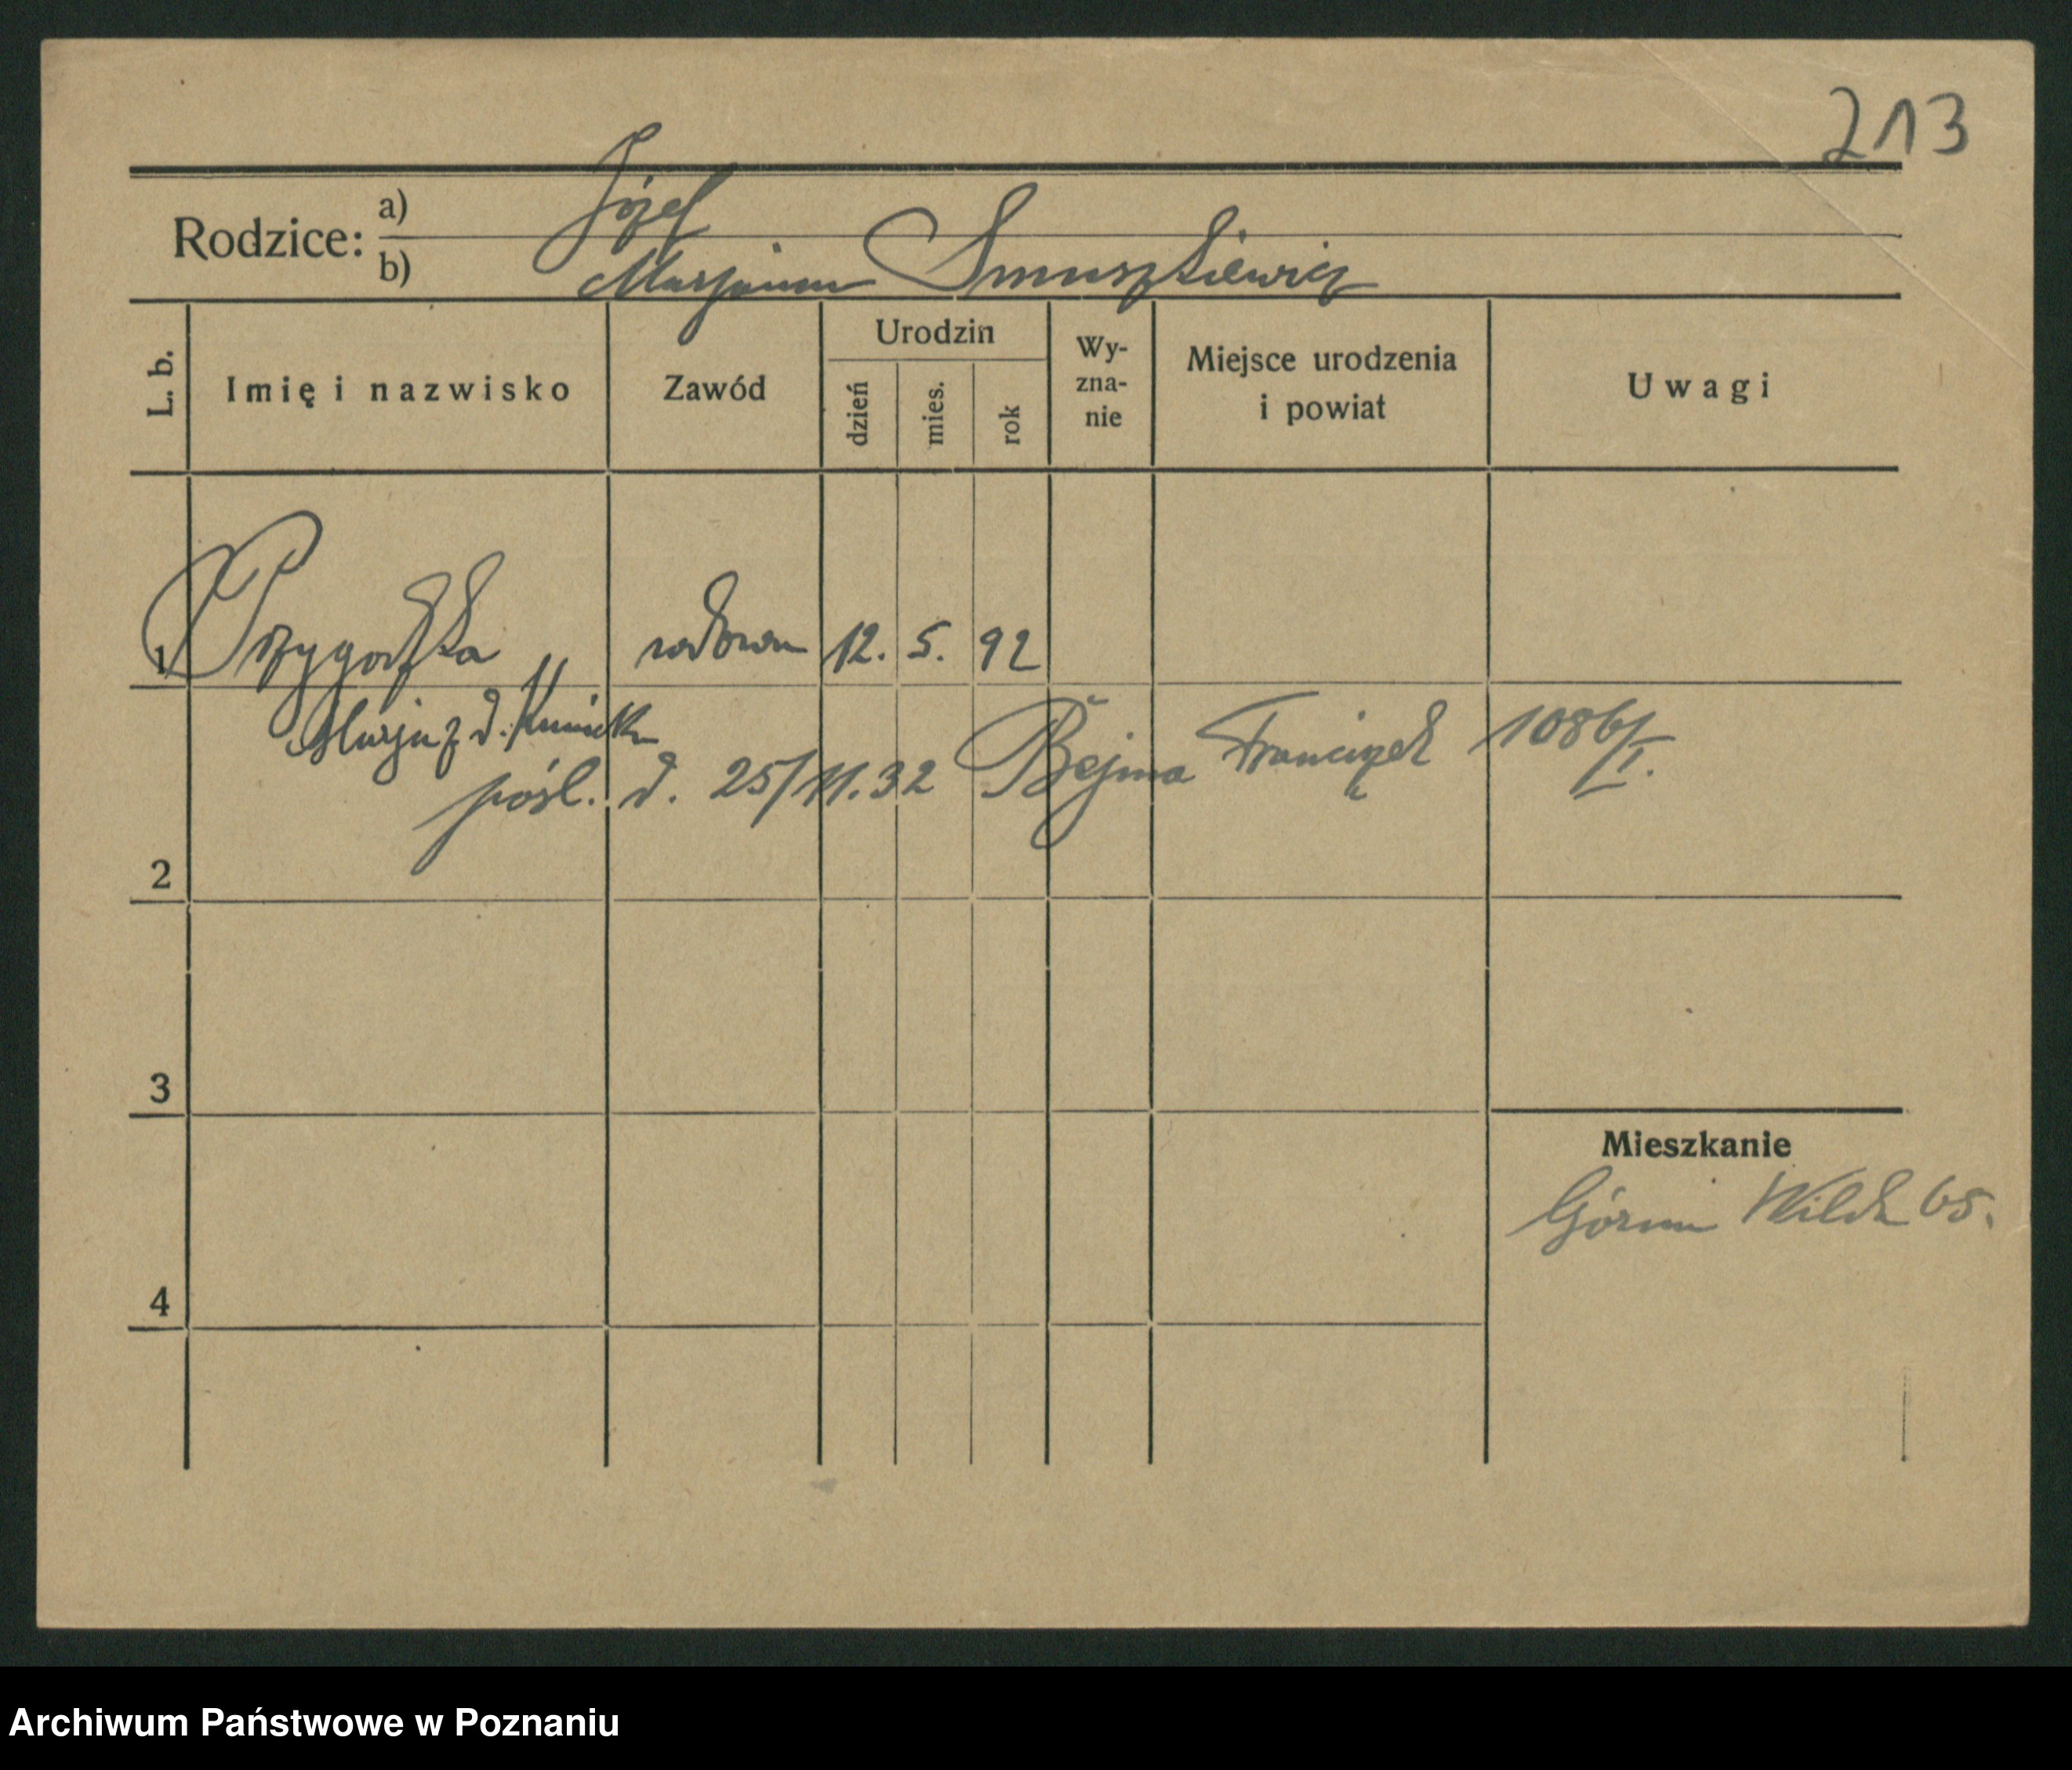 213
Rodzice: a) Józef
b) Marjanna Smuszkiewicz
L. b.
Imię i nazwisko
Zawód
Urodzin
dzień
mies.
rok
Wy-
zna-
nie
Miejsce urodzenia
i powiat
Uwagi
1 Przygodzka wdowa 12. 5. 92
Marja z d.
pośl. d. 25/11.32 Bejma Franciszek 1086/I.
2
3
Mieszkanie
Górna Wilda 65.
4
Archiwum Państwowe w Poznaniu